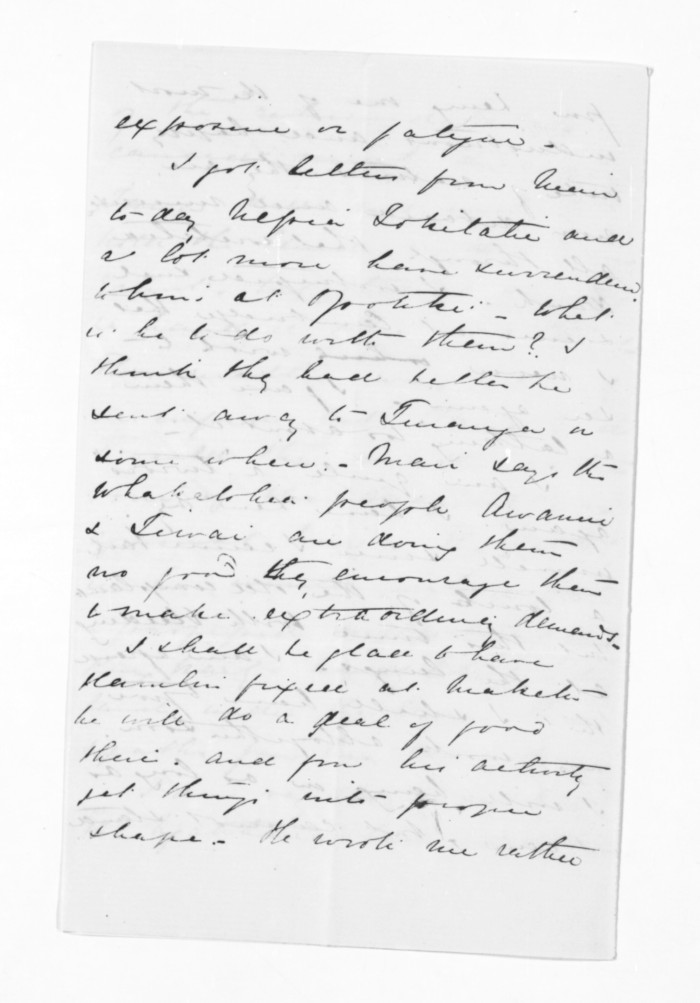 exposure or fatigue -
I got letters from Mair
to-day Nepia Tokitahi and
a lot more have surrendered
to him at Opotiki - What
is he to do with them? I
think they had better be
sent away to Turanga or
some where. - Mair says the
Whakatohea people Awanui
& Tiwai are doing them
no good they encourage them
to make extraordinary demands -
I shall be glad to have
Hamlin fixed at Maketu
he will do a deal of good
there. and from his activity
get things into proper
shape - He wrote me rather